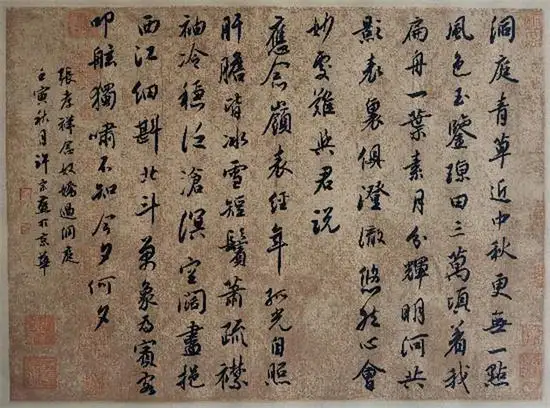 洞庭青草近中秋更無一點
風色玉鑒瓊田三萬頃着我
扁舟一葉素月分輝明河共
影表裏俱澄澈悠然心會
妙處難與君說
應念嶺表經年孤光自照
肝膽皆冰雪短鬢蕭疏襟
袖冷穩泛滄溟空闊盡挹
西江細斟北斗萬象為賓客
叩舷獨嘯不知今夕何夕
張孝祥念奴嬌過洞庭
壬寅秋月許於京華